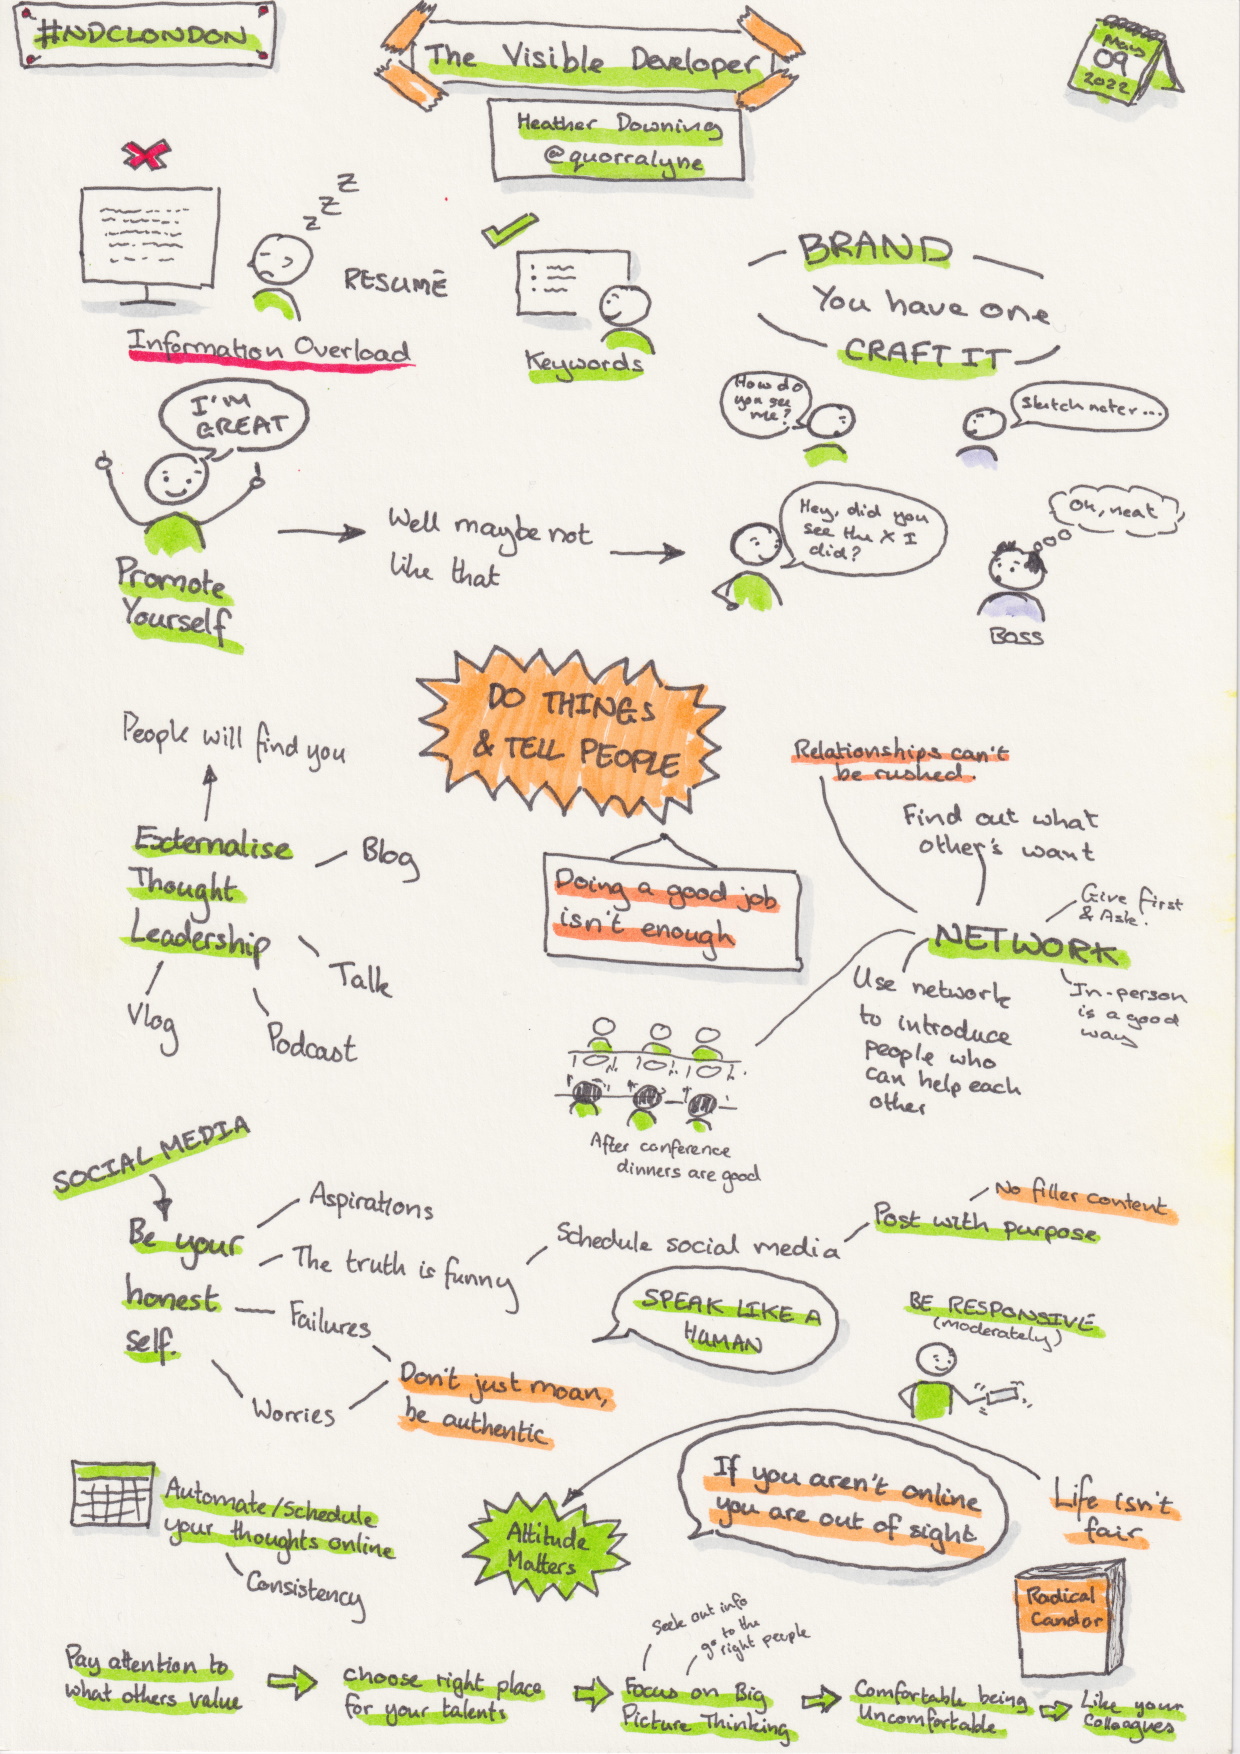 #NDCLONDON
The Visible Developer
Heather Downing
@quorralyne
May
09
2022
z z z
RESUMÉ
Information Overload
Keywords
BRAND
You have one
CRAFT IT
How do
you see
me?
Sketchnoter...
I'M
GREAT
Promote
Yourself
Well maybe not
like that
Hey, did you
see the X I
did?
Oh, neat
Boss
DO THINGS
& TELL PEOPLE
Doing a good job
isn't enough
People will find you
Externalise
Thought
Leadership
Blog
Talk
Podcast
Vlog
Relationships can't
be rushed.
Find out what
other's want
Give first
& Ask!
NETWORK
In-person
is a good
way
Use network
to introduce
people who
can help each
other
After conference
dinners are good
SOCIAL MEDIA
Be your
honest
self.
Aspirations
The truth is funny
Failures
Worries
Don't just moan,
be authentic
Schedule social media
Post with purpose
No filler content
SPEAK LIKE A
HUMAN
BE RESPONSIVE
(moderately)
Automate/Schedule
your thoughts online
Consistency
Attitude
Matters
If you aren't online
you are out of sight
Life isn't
fair
Radical
Candor
Pay attention to
what others value
choose right place
for your talents
Seek out info
go to the
right people
Focus on Big
Picture Thinking
Comfortable being
Uncomfortable
Like your
Colleagues